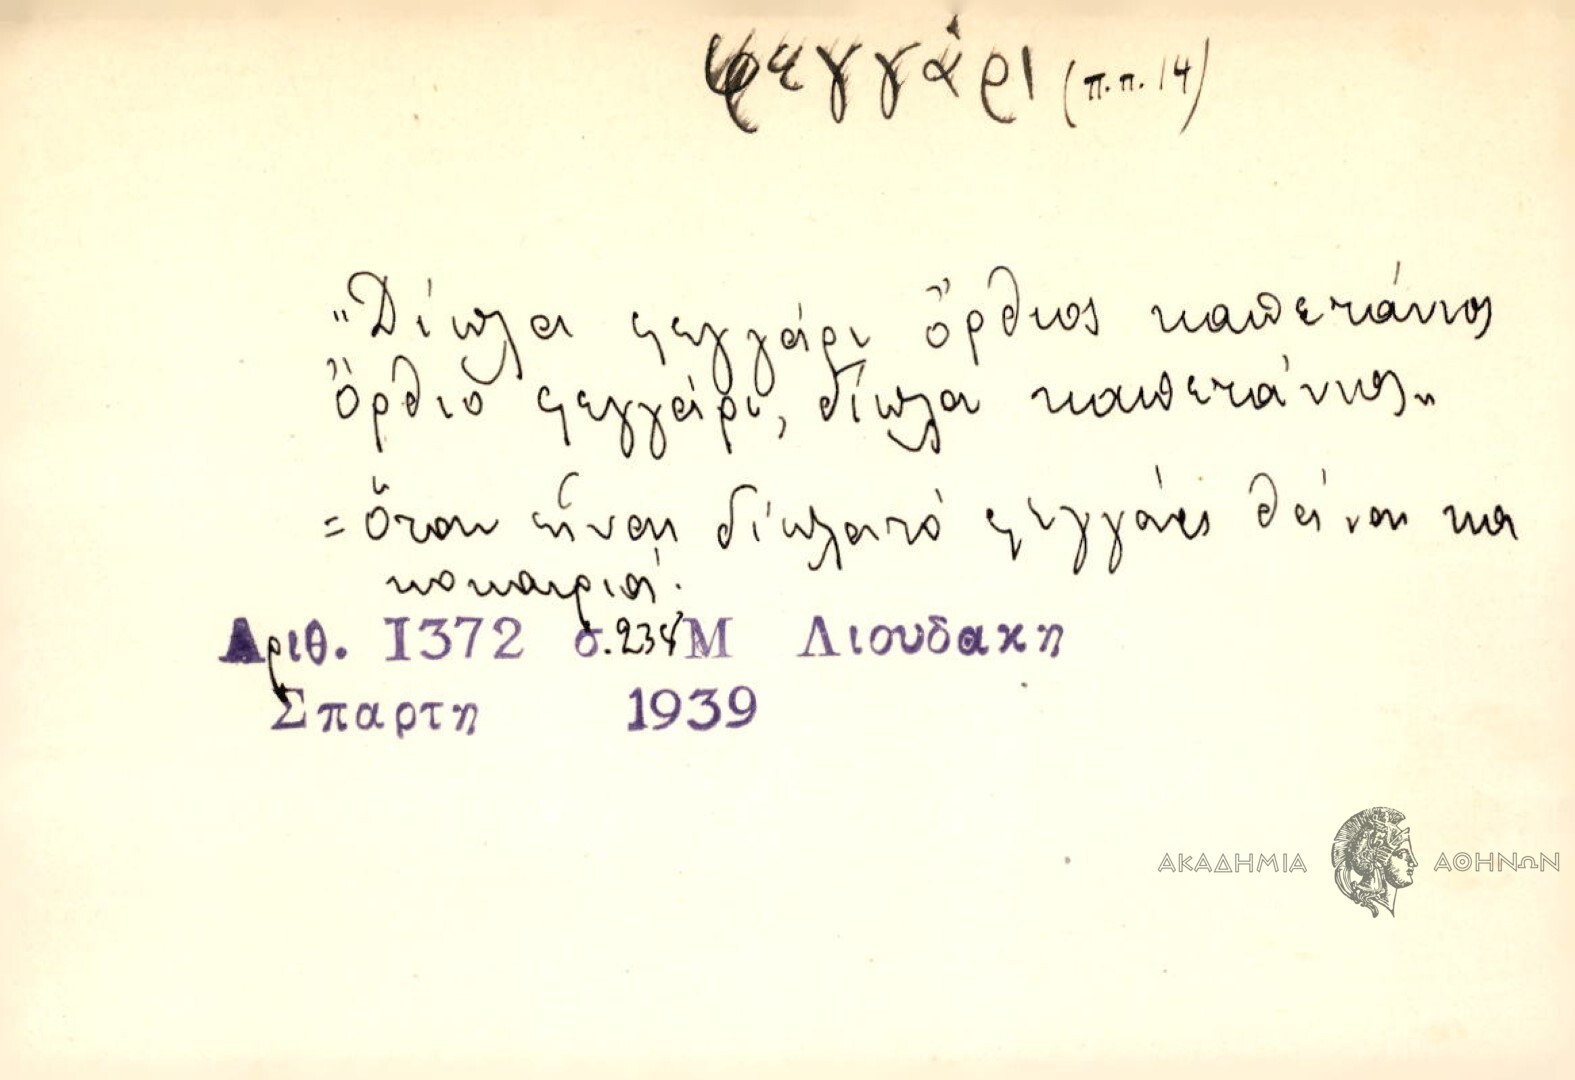 φεγγάρι (π.π. 14)
"Δίπλα φεγγάρι ὄρθιος καπετάνιος
Ὄρθιο φεγγάρι, δίπλα καπετάνιος"
= ὅταν εἶναι δίπλα τό φεγγάρι θά ναι κα
κοκαιριά.
Αριθ. 1372 σ. 234 Μ Λιουδακη
Σπαρτη 1939
ΑΚΑΔΗΜΙΑ ΑΘΗΝΩΝ